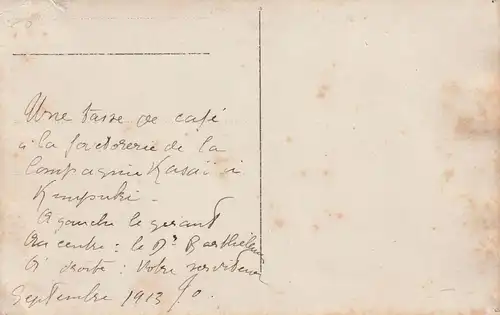 Une tasse de café
à la factorerie de la
Compagnie Kasaï à
Kimpuki -
A gauche le gérant
Au centre : le Dr
A droite : Votre serviteur
Septembre 1913